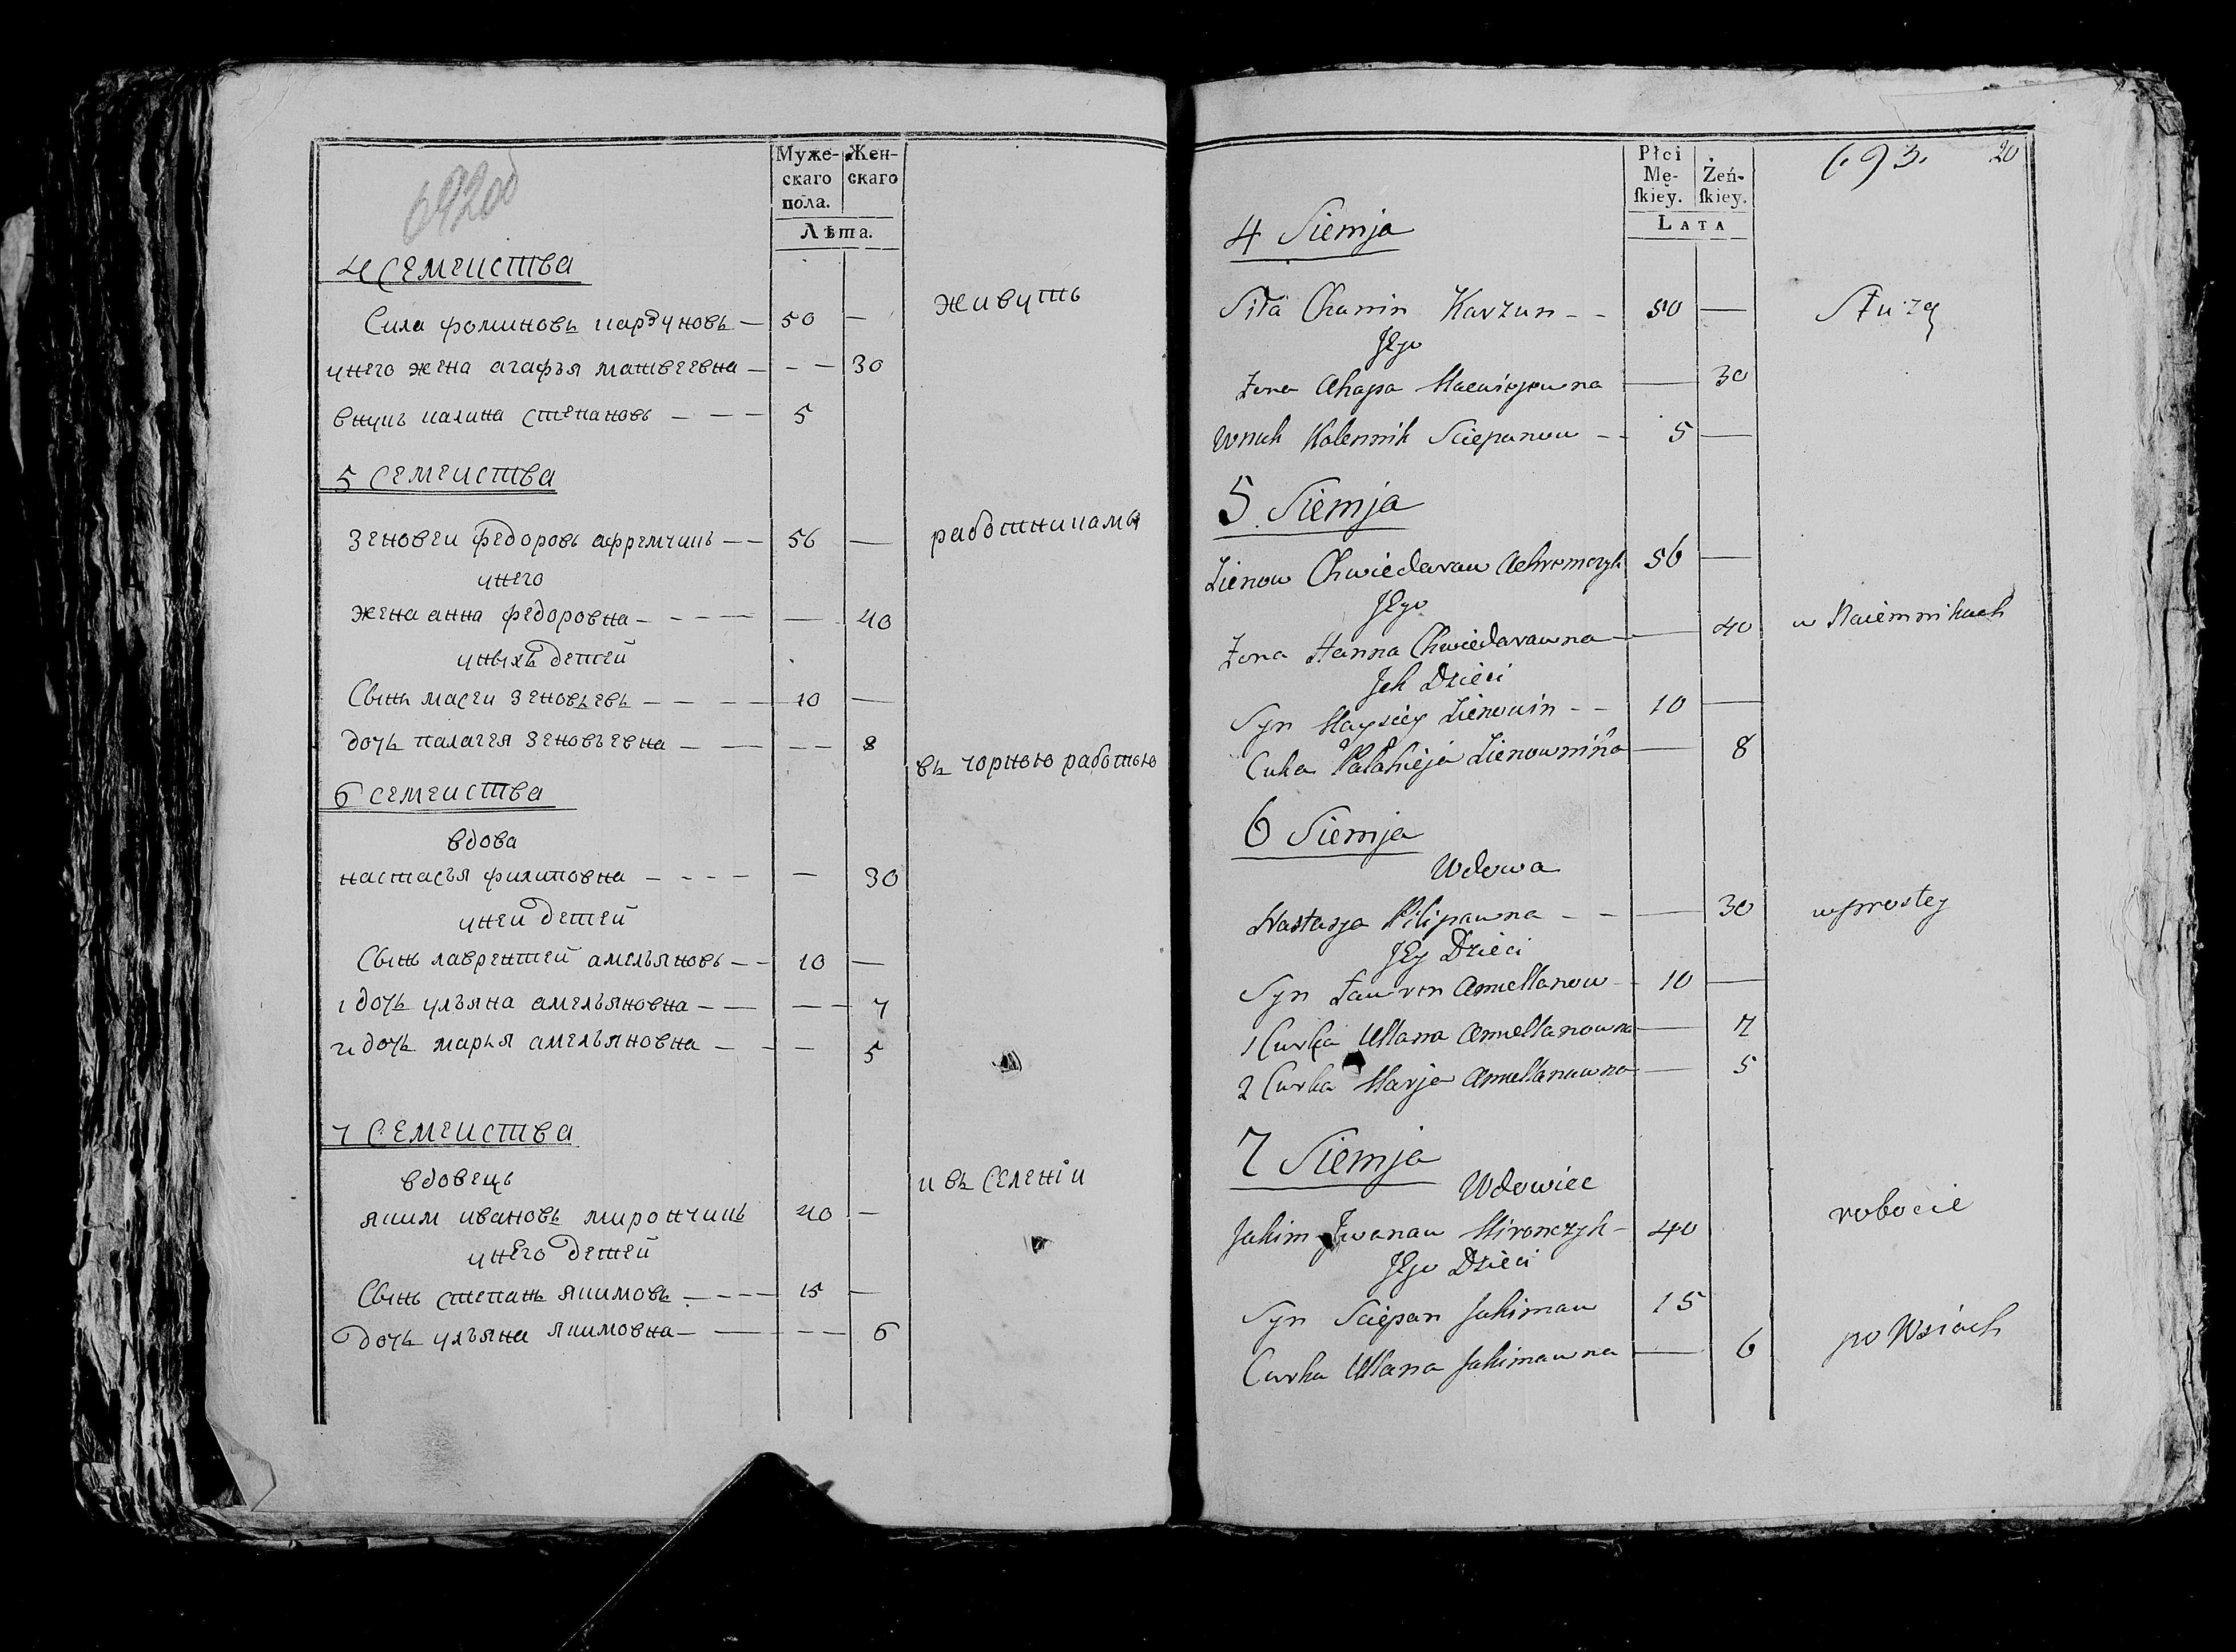 692об
Муже-
скаго
пола.
Жен-
скаго
Лѣта.
4 семеиства
Сила фоминовь карзуновь — 50 —
унего жена агафья матвеевна — — — 30
внукь калина степановь — — — 5
5 семеиства
Зеновеи федоровь афремчикь — — 56 —
унего
жена анна федоровна — — — — — 40
уныхъ детей
Сынь масеи зеновьевь — — — — 10 —
дочь палагея зеновьевна — — — — 8
6 семеиства
вдова
настасъя филиповна — — — — — 30
уней детей
Сынь лаврентей амельяновь — — 10 —
1 дочь ульяна амельяновна — — — — 7
2 дочь марья амельяновна — — — 5
7 семеиства
вдовець
яким ивановь мирончикь 40 —
унего детей
Сынь степань якимовь — — — — 15 —
дочь ульяна якимовна — — — — 6
живуть
работниками
вь чорною работою
и вь селеніи
Płci
Mę-
ſkiey.
Żeń-
ſkiey.
LATA
693. 20
4 Siemja
Siła Chamin Karzun — — 50 —
Jego
Żona Ahapa Macwiejowna — 30
Wnuk Kalennik Sciepanow — — 5 —
5 Siemja
Zienow Chwiedarau Achremczyk 56 —
Jego
Żona Hanna Chwiedarauna — — 40
Jch Dzieci
Syn Maysiey Zienowin — — 10 —
Cuka Pałahieja Zienownina — 8
6 Siemja
Wdowa
Nastasja Pilipauna — — — 30
Jey Dzieci
Syn Ławren Amellanow — 10 —
1 Curka Ullana Amellanowna — 7
2 Curka Marja Amellanauna — 5
7 Siemja
Wdowiec
Jakim Jwanau Mironczyk — 40
Jego Dzieci
Syn Sciepan Jakimau 15
Curka Ullana Jakimauna — 6
Służą
w Naiemnikach
w prostey
robocie
po Wsiach